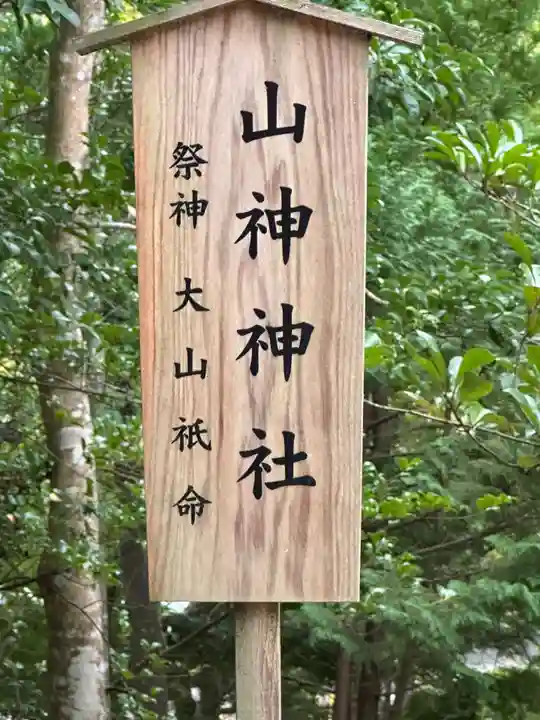 山神神社
祭神 大山祇命